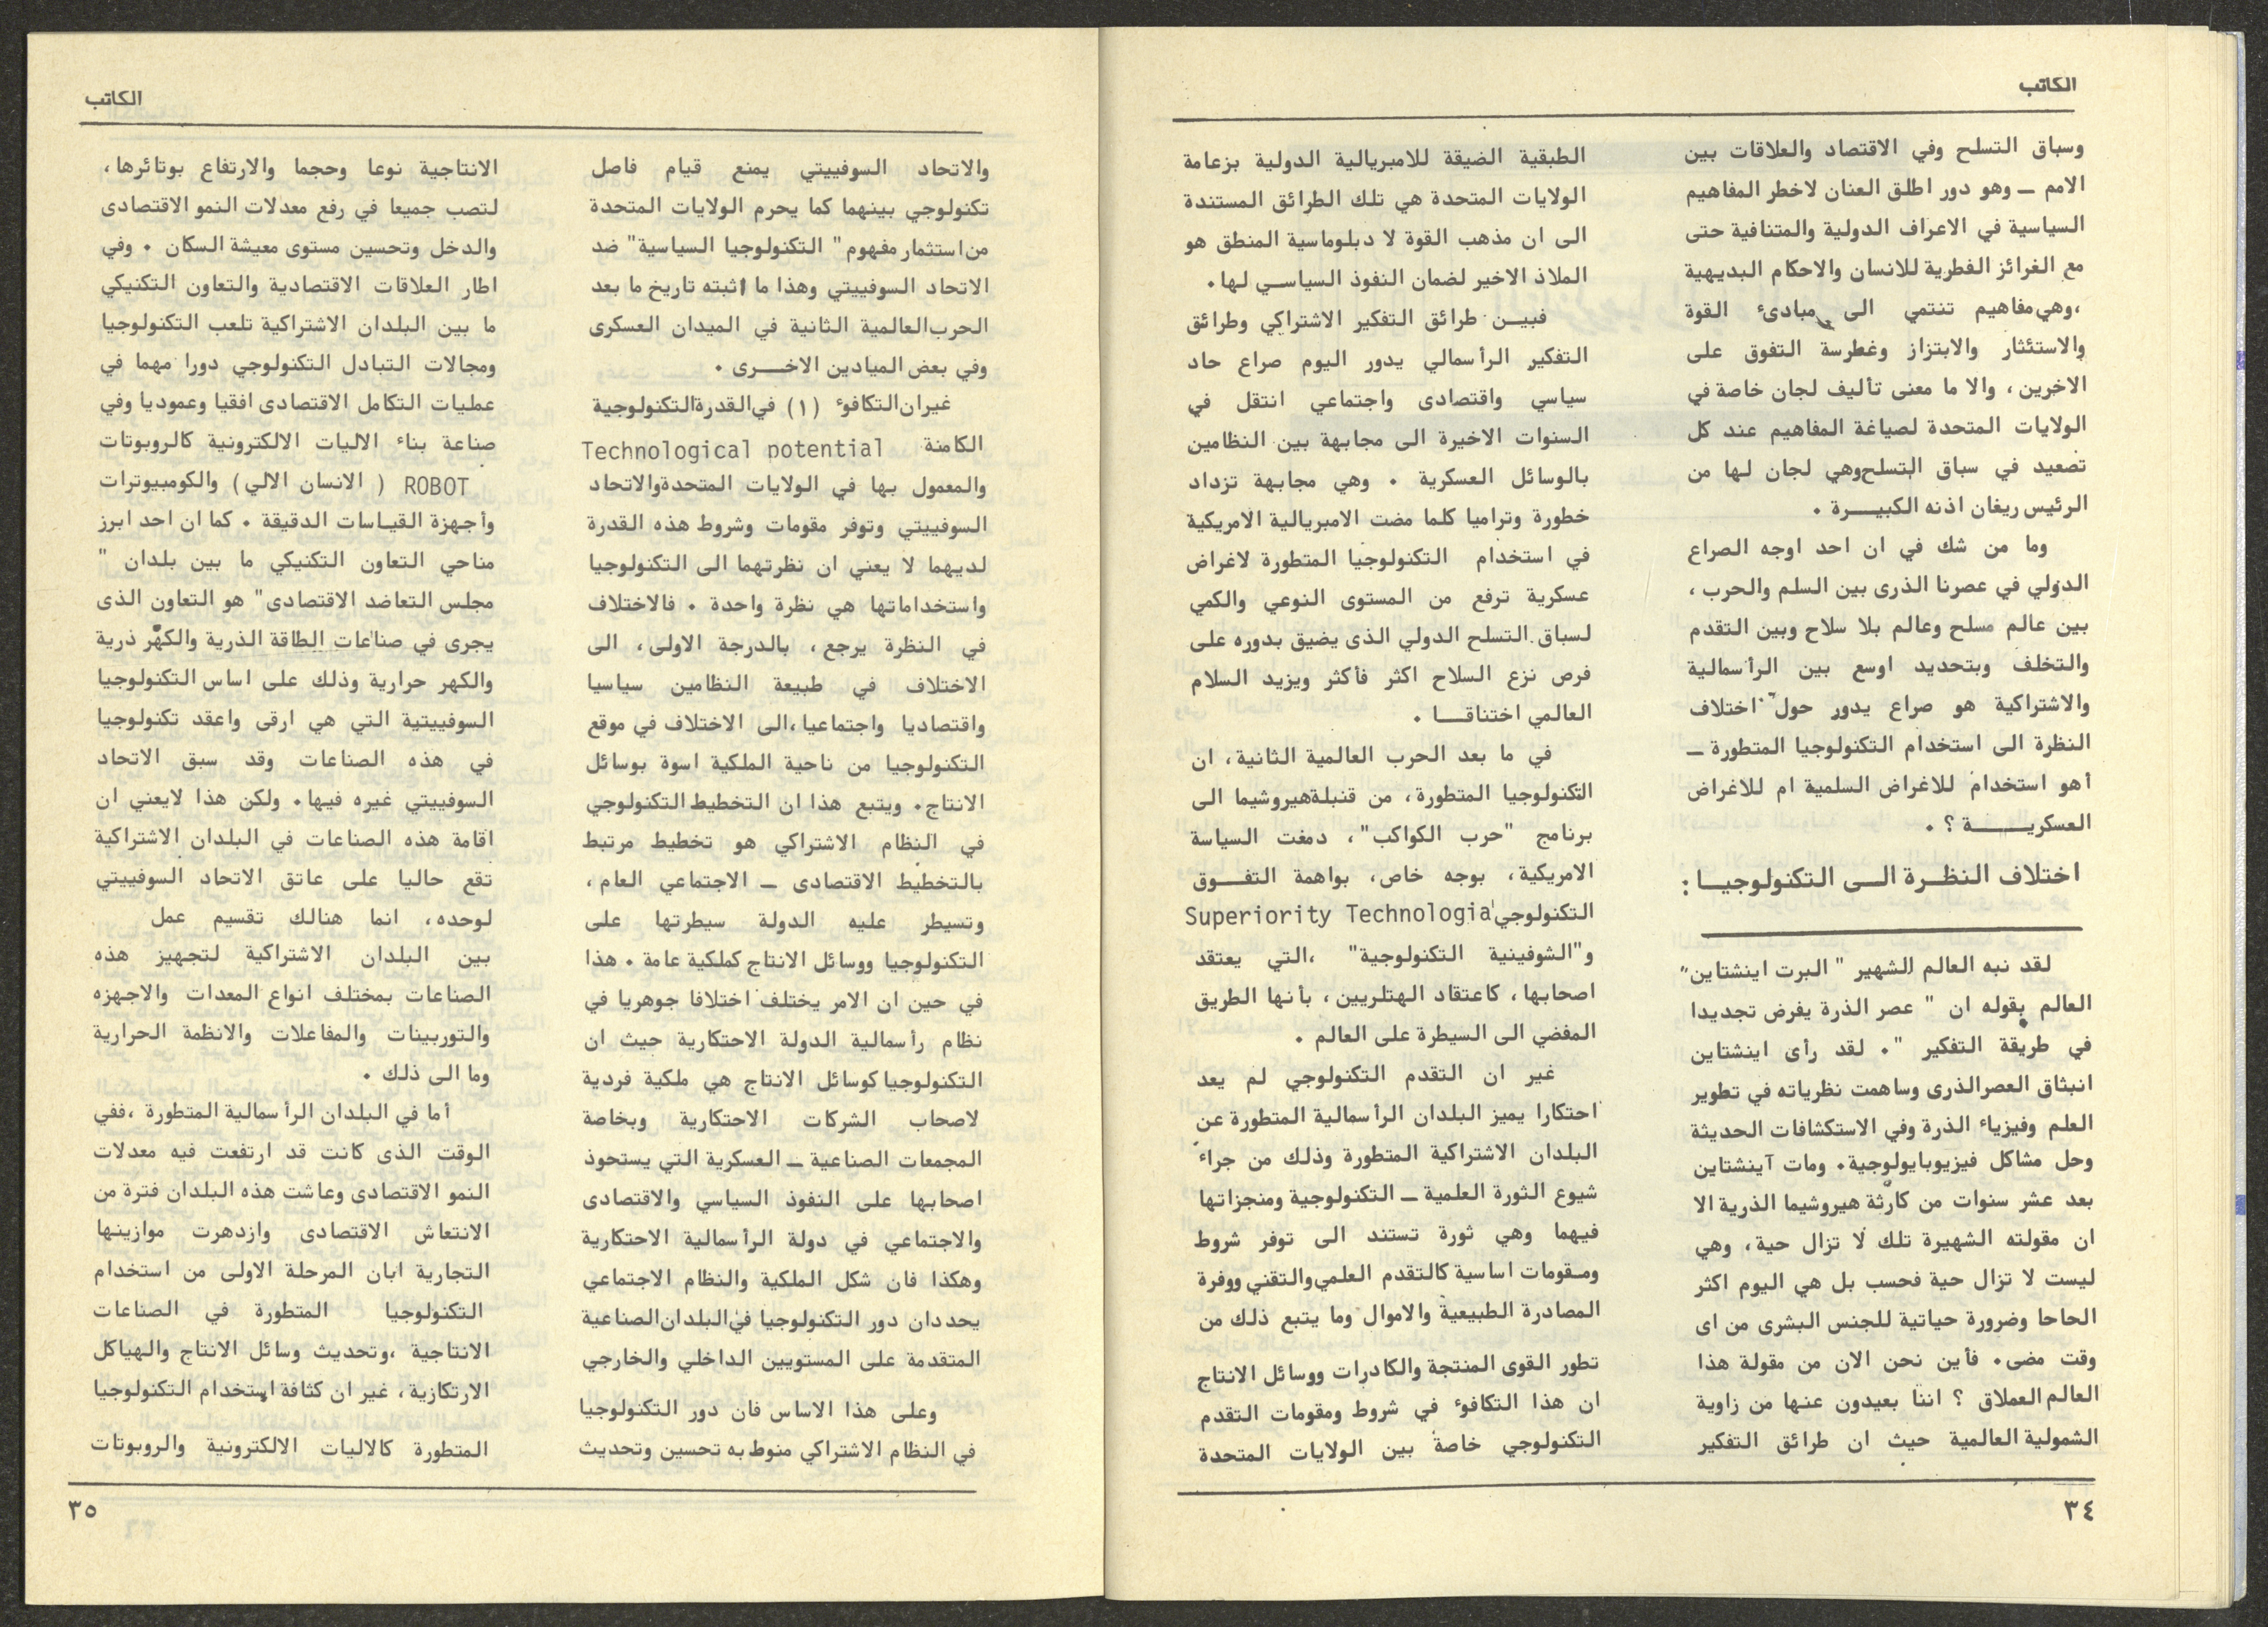 الكاتب
وسباق التسلح وفي الاقتصاد والعلاقات بين
الامم ــ وهو دور اطلق العنان لاخطر المفاهيم
السياسية في الاعراف الدولية والمتنافية حتى
مع الغرائز الفطرية للانسان والاحكام البديهية
،وهي مفاهيم تنتمي الى مبادىء القوة
والاستئثار والابتزاز وغطرسة التفوق على
الاخرين ، والا ما معنى تأليف لجان خاصة في
الولايات المتحدة لصياغة المفاهيم عند كل
تصعيد في سباق التسلح وهي لجان لها من
الرئيس ريغان اذنه الكبيـــرة .
وما من شك في ان احد اوجه الصراع
الدولي في عصرنا الذرى بين السلم والحرب ،
بين عالم مسلح وعالم بلا سلاح وبين التقدم
والتخلف وبتحديد اوسع بين الرأسمالية
والاشتراكية هو صراع يدور حول اختلاف
النظرة الى استخدام التكنولوجيا المتطورة ــ
أهو استخدام للاغراض السلمية ام للاغراض
العسكريــــــة ؟ .
اختلاف النظـرة الــى التكنولوجيــا :
لقد نبه العالم الشهير " البرت اينشتاين"
العالم بقوله ان " عصر الذرة يفرض تجديدا
في طريقة التفكير ". لقد رأى اينشتاين
انبثاق العصر الذرى وساهمت نظرياته في تطوير
العلم وفيزياء الذرة وفي الاستكشافات الحديثة
وحل مشاكل فيزيوبايولوجية. ومات آينشتاين
بعد عشر سنوات من كارثة هيروشيما الذرية الا
ان مقولته الشهيرة تلك لا تزال حية، وهي
ليست لا تزال حية فحسب بل هي اليوم اكثر
الحاحا وضرورة حياتية للجنس البشرى من اى
وقت مضى. فأين نحن الان من مقولة هذا
العالم العملاق ؟ اننا بعيدون عنها من زاوية
الشمولية العالمية حيث ان طرائق التفكير
الطبقية الضيقة للامبريالية الدولية بزعامة
الولايات المتحدة هي تلك الطرائق المستندة
الى ان مذهب القوة لا دبلوماسية المنطق هو
الملاذ الاخير لضمان النفوذ السياسـي لـها.
فبيــن طرائق التفكير الاشتراكي وطرائق
التفكير الرأسمالي يدور اليوم صراع حاد
سياسي واقتصادى واجتماعي انتقل في
السنوات الاخيرة الى مجابهة بين النظامين
بالوسائل العسكرية . وهي مجابهة تزداد
خطورة وتراميا كلما مضت الامبريالية الامريكية
في استخدام التكنولوجيا المتطورة لاغراض
عسكرية ترفع من المستوى النوعي والكمي
لسباق التسلح الدولي الذى يضيق بدوره على
فرص نزع السلاح اكثر فأكثر ويزيد السلام
العالمي اختناقــا .
في ما بعد الحرب العالمية الثانية، ان
التكنولوجيا المتطورة، من قنبلة هيروشيما الى
برنامج "حرب الكواكب"، دمغت السياسة
الامريكية، بوجه خاص، بواهمة التفــوق
التكنولوجي Superiority Technologia
و"الشوفينية التكنولوجية" ،التي يعتقد
اصحابها، كاعتقاد الهتلريين، بأنها الطريق
المفضي الى السيطرة على العالم .
غير ان التقدم التكنولوجي لم يعد
احتكارا يميز البلدان الرأسمالية المتطورة عن
البلدان الاشتراكية المتطورة وذلك من جراء
شيوع الثورة العلمية ــ التكنولوجية ومنجزاتها
فيهما وهي ثورة تستند الى توفر شروط
ومـقومات اساسية كالتقدم العلمي والتقني ووفرة
المصادرة الطبيعية والاموال وما يتبع ذلك من
تطور القوى المنتجة والكادرات ووسائل الانتاج
ان هذا التكافوء في شروط ومقومات التقدم
التكنولوجي خاصة بين الولايات المتحدة
٣٤
الكاتب
والاتحاد السوفييتي يمنع قيام فاصل
تكنولوجي بينهما كما يحرم الولايات المتحدة
من استثمار مفهوم " التكنولوجيا السياسية" ضد
الاتحاد السوفييتي وهذا ما اثبته تاريخ ما بعد
الحرب العالمية الثانية في الميدان العسكرى
وفي بعض الميادين الاخـــرى .
غير ان التكافوء (١) في القدرة التكنولوجية
الكامنة Technological potential
والمعمول بها في الولايات المتحدة والاتحاد
السوفييتي وتوفر مقومات وشروط هذه القدرة
لديهما لا يعني ان نظرتهما الى التكنولوجيا
واستخداماتها هي نظرة واحدة . فالاختلاف
في النظرة يرجع ، بالدرجة الاولى، الى
الاختلاف في طبيعة النظامين سياسيا
واقتصاديا واجتماعيا ،الى الاختلاف في موقع
التكنولوجيا من ناحية الملكية اسوة بوسائل
الانتاج. ويتبع هذا ان التخطيط التكنولوجي
في النظام الاشتراكي هو تخطيط مرتبط
بالتخطيط الاقتصادى ــ الاجتماعي العام ،
وتسيطر عليه الدولة سيطرتها على
التكنولوجيا ووسائل الانتاج كملكية عامة . هذا
في حين ان الامر يختلف اختلافا جوهريا في
نظام رأسمالية الدولة الاحتكارية حيث ان
التكنولوجيا كوسائل الانتاج هي ملكية فردية
لاصحاب الشركات الاحتكارية وبخاصة
المجمعات الصناعية ــ العسكرية التي يستحوذ
اصحابها على النفوذ السياسي والاقتصادى
والاجتماعي في دولة الرأسمالية الاحتكارية
وهكذا فان شكل الملكية والنظام الاجتماعي
يحددان دور التكنولوجيا في البلدان الصناعية
المتقدمة على المستويين الداخلي والخارجي
وعلى هذا الاساس فان دور التكنولوجيا
في النظام الاشتراكي منوط به تحسين وتحديث
الانتاجية نوعا وحجما والارتفاع بوتائرها،
لتصب جميعا في رفع معدلات النمو الاقتصادى
والدخل وتحسين مستوى معيشة السكان . وفي
اطار العلاقات الاقتصادية والتعاون التكنيكي
ما بين البلدان الاشتراكية تلعب التكنولوجيا
ومجالات التبادل التكنولوجي دورا مهما في
عمليات التكامل الاقتصادى افقيا وعموديا وفي
صناعة بناء الاليات الالكترونية كالروبوتات
ROBOT ( الانسان الالي) والكومبيوترات
وأجهزة القياسات الدقيقة . كما ان احد ابرز
مناحي التعاون التكنيكي ما بين بلدان "
مجلس التعاضد الاقتصادى" هو التعاون الذى
يجرى في صناعات الطاقة الذرية والكهر ذرية
والكهر حرارية وذلك على اساس التكنولوجيا
السوفييتية التي هي ارقى واعقد تكنولوجيا
في هذه الصناعات وقد سبق الاتحاد
السوفييتي غيره فيها. ولكن هذا لايعني ان
اقامة هذه الصناعات في البلدان الاشتراكية
تقع حاليا على عاتق الاتحاد السوفييتي
لوحده، انما هنالك تقسيم عمل
بين البلدان الاشتراكية لتجهيز هذه
الصناعات بمختلف انواع المعدات والاجهزه
والتوربينات والمفاعلات والانظمة الحرارية
وما الى ذلك .
أما في البلدان الرأسمالية المتطورة ،ففي
الوقت الذى كانت قد ارتفعت فيه معدلات
النمو الاقتصادى وعاشت هذه البلدان فترة من
الانتعاش الاقتصادى وازدهرت موازينها
التجارية ابان المرحلة الاولى من استخدام
التكنولوجيا المتطورة في الصناعات
الانتاجية ،وتحديث وسائل الانتاج والهياكل
الارتكازية، غير ان كثافة استخدام التكنولوجيا
المتطورة كالاليات الالكترونية والروبوتات
٣٥